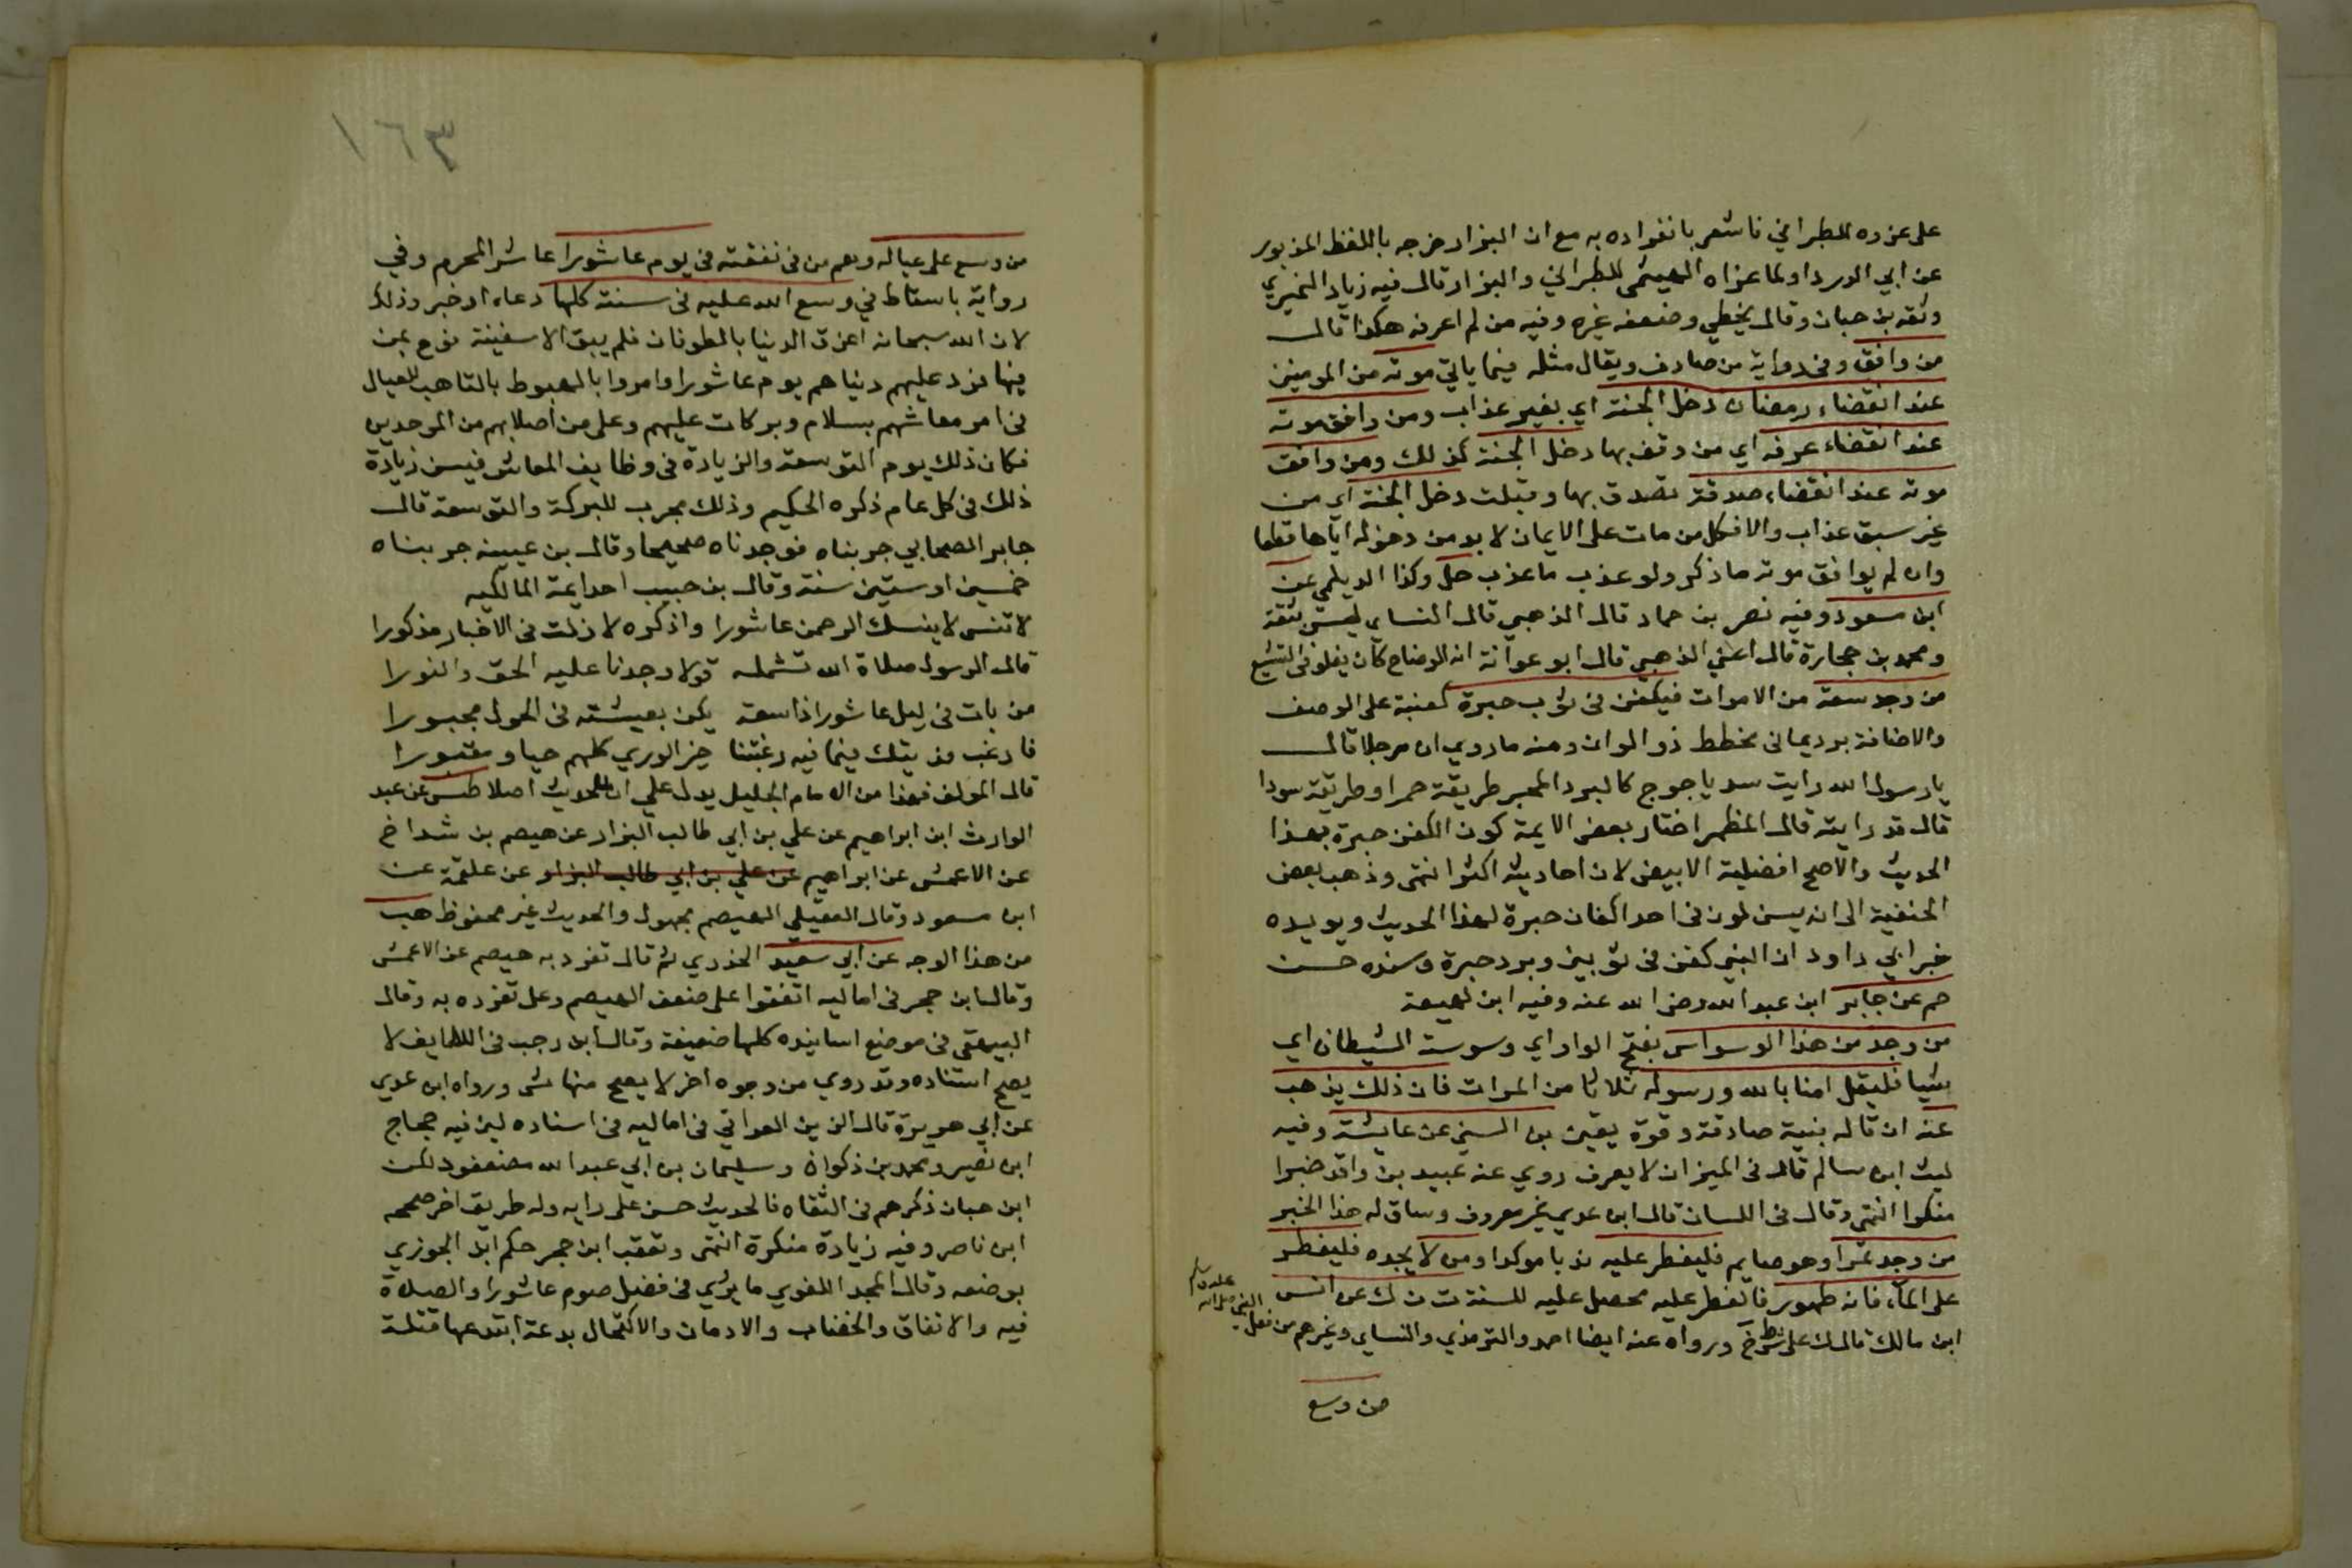 على عزوه للطبراني فاشعر بانفراده به مع ان البزار خرجه باللفظ المزبور
عن ابي الدرداو لما عزاه الهيثمى للطبراني والبزار قال فيه زياد النميري
وثقه بن حبان وقال يخطي وضعفه غيره وفيه من لم اعرفه هكذا قال
من وافق وفى رواية من صادف ويقال مثله فيما ياتي موته من المومنين
عند انقضاء رمضان دخل الجنة اي بغير عذاب ومن وافق موته
عند انقضاء عرفه اي من وقف بها دخل الجنة كذلك ومن وافق
موته عند انقضاء صدقة تصدق بها وقبلت دخل الجنة اي من
غير سبق عذاب والا فكل من مات على الايمان لابد من دخوله اياها قطعا
وان لم يوافق موته ما ذكر ولو عذب ما عذب حل وكذا الديلمي عن
ابن مسعود وفيه نصر بن حماد قال الذهبي قال النساى ليس بثقة
ومحمد بن حجارة قال اعني الذهبي قال ابو عوانة انه الوضاح كان يغلو فى التشيع
من وجد سعة من الاموات فيكفن فى ثوب حبرة كعنبة على الوصف
والاضافة برد يمانى مخطط ذو الوان ومنه ما روي ان رجلا قال
يا رسول الله رايت سد ياجوج كالبرد المحبر طريقة حمرا وطريقة سودا
قال قد رايته قال المظهر اختار بعض الايمة كون الكفن حبرة بهذا
الحديث والاصح افضلية الابيض لان احاديثه اكثر انتهى وذهب بعض
الحنفية الى ان يسن لون فى احد اكفان حبرة لهذا الحديث ويويده
خبر ابي داود ان النبي كفن فى ثوبين وبرد حبرة وسنده حسن
حم عن جابر ابن عبد الله رضى الله عنه وفيه ابن لهيعة
من وجد من هذا الوسواس بفتح الواو اي وسوسة الشيطان اي
شيا فليقل امنا بالله ورسوله ثلاثا من المرات فان ذلك يذهب
عنه ان قاله بنية صادقة وقوة يقين بن السني عن عايشة وفيه
ليث ابن سالم قال فى الميزان لا يعرف روي عنه عبيد بن واقد خبرا
منكرا انتهى وقال فى اللسان قال ابن عدي غير معروف وساق له هذا الخبر
من وجد تمرا وهو صايم فليفطر عليه ندبا موكدا ومن لا يجده فليفطر
على الماء فانه طهور فالفطر عليه محصل عليه للسنة ت ن ك عن انس
ابن مالك قال ك على شرط خ ورواه عنه ايضا احمد والترمذي والنساى وغيرهم من فعل
النبي صلى الله
عليه وسلم
من وسع
١٦٣
من وسع على عياله وهم من فى نفقته فى يوم عاشورا عاشر المحرم وفي
رواية باسقاط في وسع الله عليه فى سنته كلها دعاء او خبر وذلك
لان الله سبحانه اغرق الدنيا بالطوفان فلم يبق الا سفينة نوح بمن
فيها فرد عليهم دنياهم يوم عاشورا وامروا بالهبوط بالتاهب للعيال
فى امر معاشهم بسلام وبركات عليهم وعلى من اصلابهم من الموحدين
فكان ذلك يوم التوسعة والزيادة فى وظايف المعاش فيسن زيادة
ذلك فى كل عام ذكره الحكيم وذلك مجرب للبركة والتوسعة قال
جابر الصحابي جربناه فوجدناه صحيحا وقال بن عيينه جربناه
خمسين او ستين سنة وقال بن حبيب احد ايمة المالكيه
لا تنس لا ينسك الرحمن عاشورا واذكره لا زلت فى الاخبار مذكورا
قال الرسول صلاة الله تشمله قولا وجدنا عليه الحق والنورا
من بات فى ليل عاشورا ذا سعة يكن بعيشته فى الحول محبورا
فارغب فديتك فيما فيه رغبتنا خير الوري كلهم حيا ومقبورا
قال المولف فهذا من الامام الجليل يدل علي ان للحديث اصلا طس عن عبد
الوارث ابن ابراهيم عن علي بن ابي طالب البزار عن هيصم بن شداخ
عن الاعمش عن ابراهيم عن علي بن ابي طالب البزار عن علقمة عن
ابن مسعود وقال العقيلي الهيصم مجهول والحديث غير محفوظ هب
من هذا الوجه عن ابي سعيد الخدري ثم قال تفرد به هيصم عن الاعمش
وقال ابن حجر فى اماليه اتفقوا على ضعف الهيصم وعلى تفرده به وقال
البيهقى فى موضع اسانيده كلها ضعيفة وقال ابن رجب فى اللطايف لا
يصح اسناده وقد روي من وجوه اخر لا يصح منها شى ورواه ابن عدي
عن ابي هريرة قال الزين العراقي فى اماليه فى اسناده لين فيه حجاج
ابن نصير ومحمد بن ذكوان وسليمان بن ابي عبد الله مضعفون لكن
ابن حبان ذكرهم فى الثقاه فالحديث حسن على رايه وله طريق اخر صححه
ابن ناصر وفيه زيادة منكرة انتهى وتعقب ابن حجر حكم ابن الجوزي
بوضعه وقال المجد اللغوي ما يروي فى فضل صوم عاشورا والصلاة
فيه والانفاق والخضاب والادهان والاكتحال بدعة ابتدعها قتلة